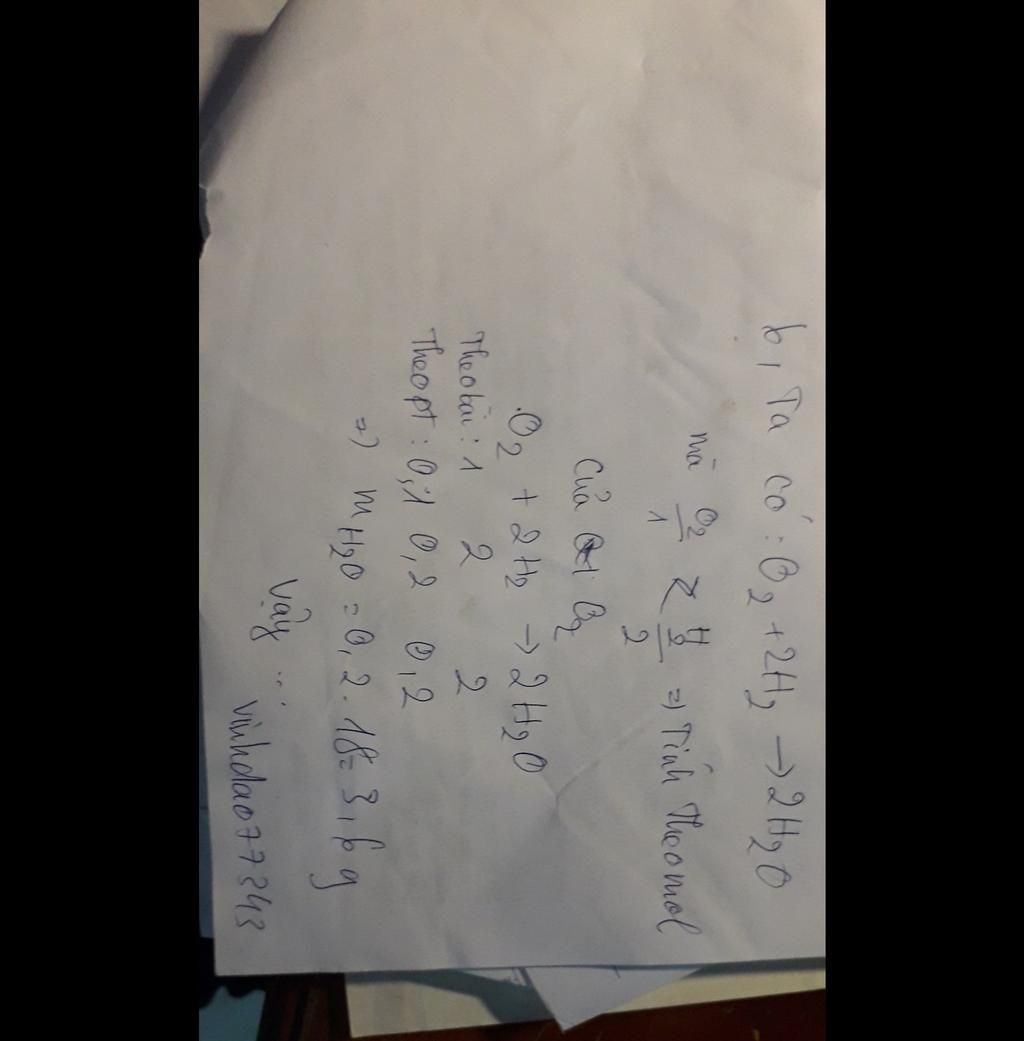 b, Ta có: O₂ + 2H₂ → 2H₂O
mà O₂/1 < H₂/2 => Tính theo mol
của O₂
O₂ + 2H₂ → 2H₂O
Theo bài: 1 2 2
Theo pt: 0,1 0,2 0,2
=> mH₂O = 0,2 . 18 = 3,6 g
Vậy ...
vinhdao077343